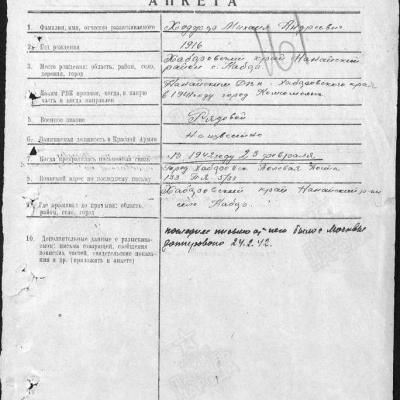 АНКЕТА
1. Фамилия, имя, отчество разыскиваемого
Ходжер Михаил Андреевич
2. Год рождения
1916
3. Место рождения: область, район, село, деревня, город
Хабаровский край Нанайский
район с. Найхин
4. Каким РВК призван, когда, в какую часть и когда направлен
Нанайским Хабаровского края
в 1941 году город
5. Военное звание
Рядовой
6. Занимаемая должность в Красной Армии
Неизвестно
7. Когда прекратилась письменная связь
1942 году 23 февраля
8. Воинский адрес по последнему письму
город Хабаровск Полевая Почта
133 П/Я
9. Где проживал до призыва: область, район, село, город
Хабаровский край Нанайский р-н
село
10. Дополнительные данные о разыскиваемом: письма товарищей, сообщения воинских частей, свидетельские показания и пр. (приложить к анкете)
последнее письмо от него было с Москвы
датировано 24.2.42.